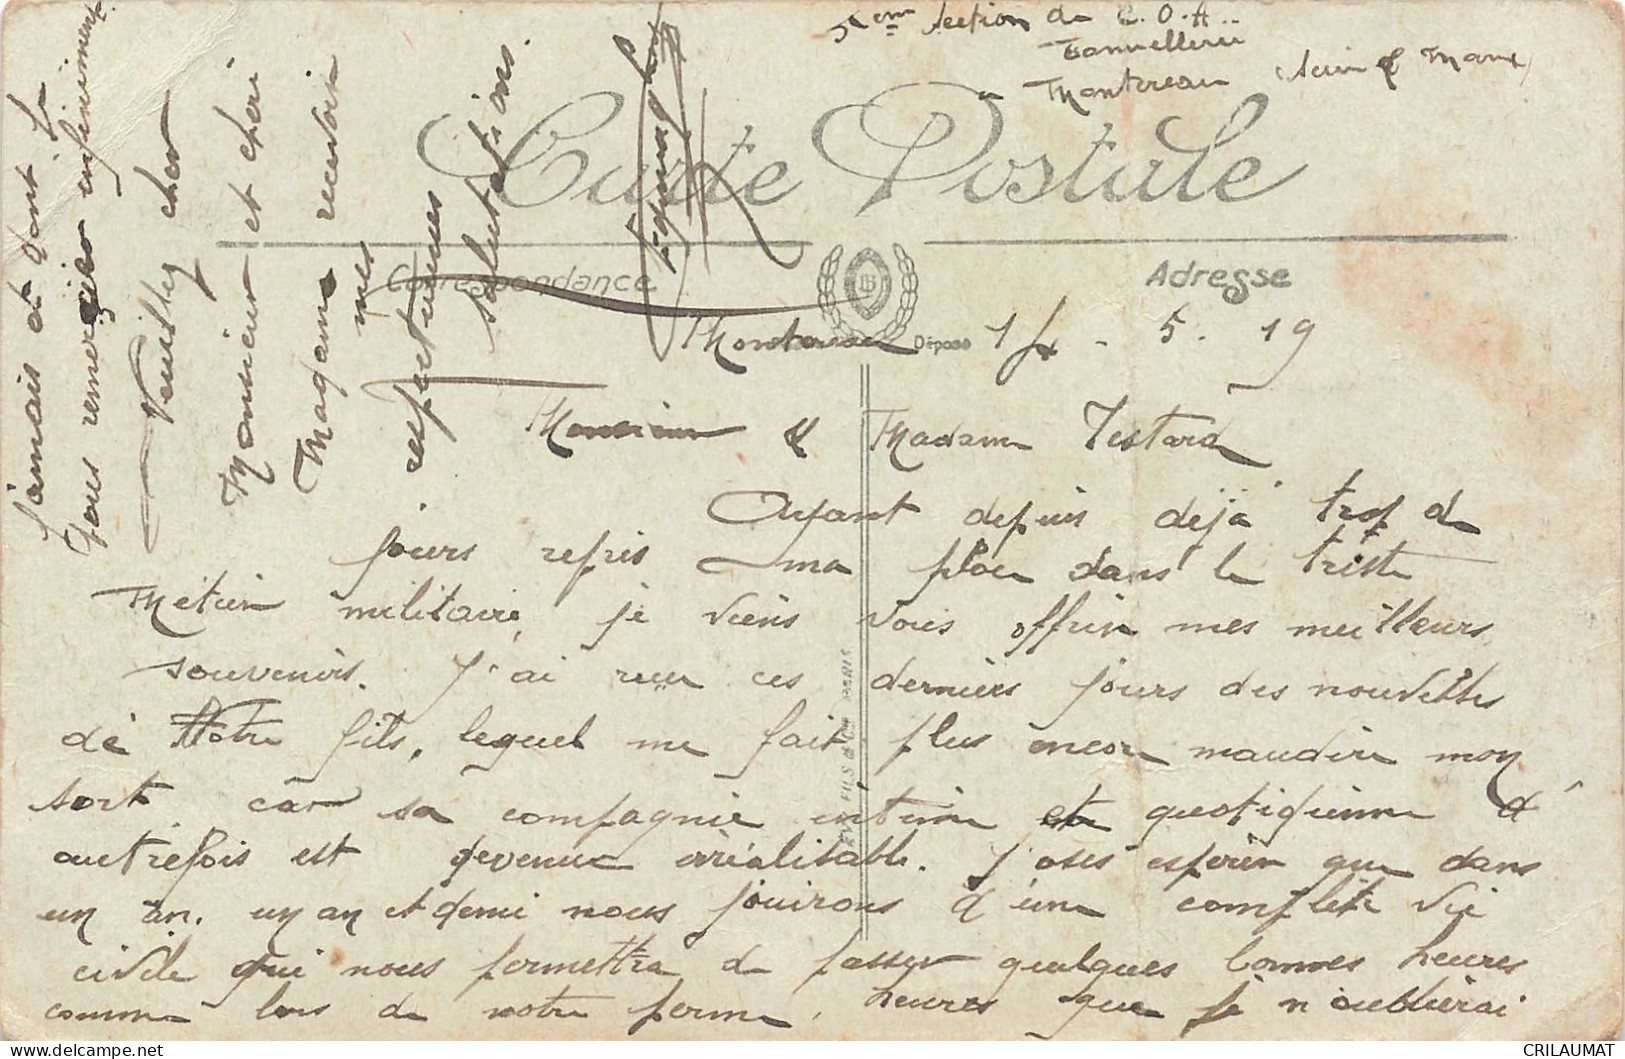 5eme section de C.O.A..
Tonnellerie
à Montereau (Seine & Marne)
Carte Postale
Correspondance
Adresse
Déposé
Montereau 14 - 5. 19
Monsieur & Madame Testard
Ayant depuis déjà trop de
jours repris ma place dans le triste
Métier militaire, je viens vous offrir mes meilleurs
souvenirs. J'ai reçu ces derniers jours des nouvelles
de Votre fils, lequel me fait plus encore maudire mon
sort car sa compagnie intime et quotidienne d'
autrefois est devenue irréalisable. J'ose espérer que dans
un an, un an et demi nous jouirons d'une complète vie
civile qui nous permettra de passer quelques bonnes heures
comme lors de notre perme, heures que je n'oublierai
jamais et dont je
vous remercie infiniment
Veuillez cher
Monsieur et chère
Madame recevoir
mes
respectueuses
salutations.